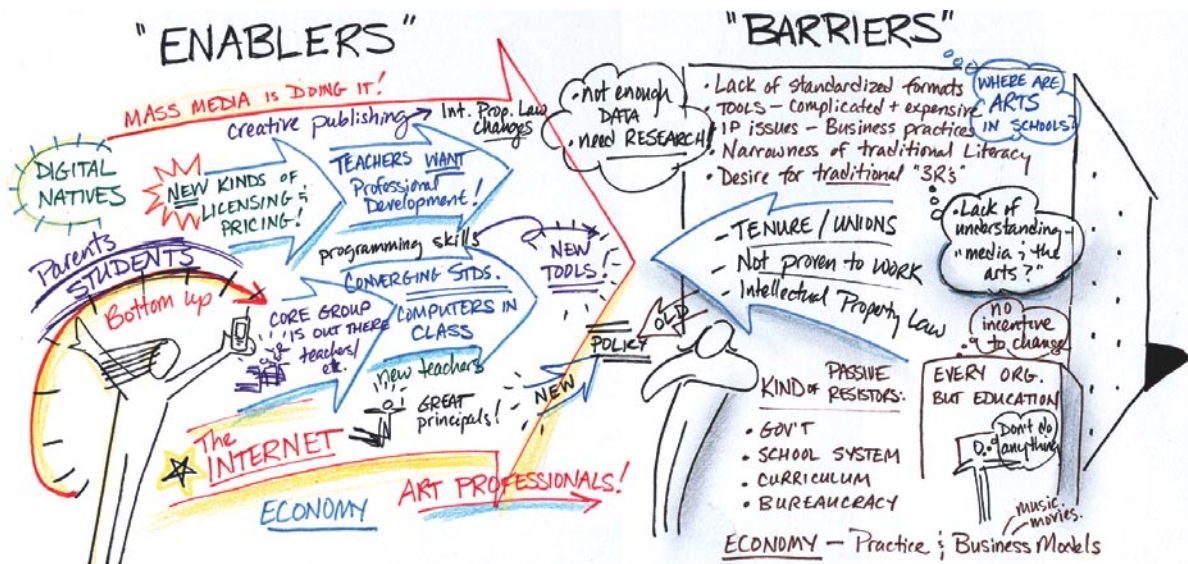 "ENABLERS"
MASS MEDIA is DOING IT!
creative publishing
Int. Prop. Law
Changes
DIGITAL
NATIVES
NEW KINDS OF
LICENSING &
PRICING!
TEACHERS WANT
Professional
Development!
programming skills
NEW
TOOLS!
Parents
STUDENTS
Bottom up
CONVERGING STDS.
COMPUTERS IN
CLASS
CORE GROUP
IS OUT THERE
teachers/
etc.
new teachers
GREAT
principals!
NEW
POLICY
OLD
The
INTERNET
ECONOMY
ART PROFESSIONALS!
"BARRIERS"
• not enough
DATA
• need RESEARCH!
• Lack of standardized formats
• TOOLS – Complicated + expensive
• IP issues – Business practices
• Narrowness of traditional Literacy
• Desire for traditional "3R's"
WHERE ARE
ARTS
IN SCHOOLS?
– TENURE / UNIONS
– Not proven to WORK
– Intellectual Property Law
• Lack of
understanding –
"media & the
arts?"
no
incentive
to change
KIND OF PASSIVE
RESISTORS:
• GOV'T
• SCHOOL SYSTEM
• CURRICULUM
• BUREAUCRACY
EVERY ORG.
BUT EDUCATION
Don't do
anything
music
movies.
ECONOMY – Practice & Business Models